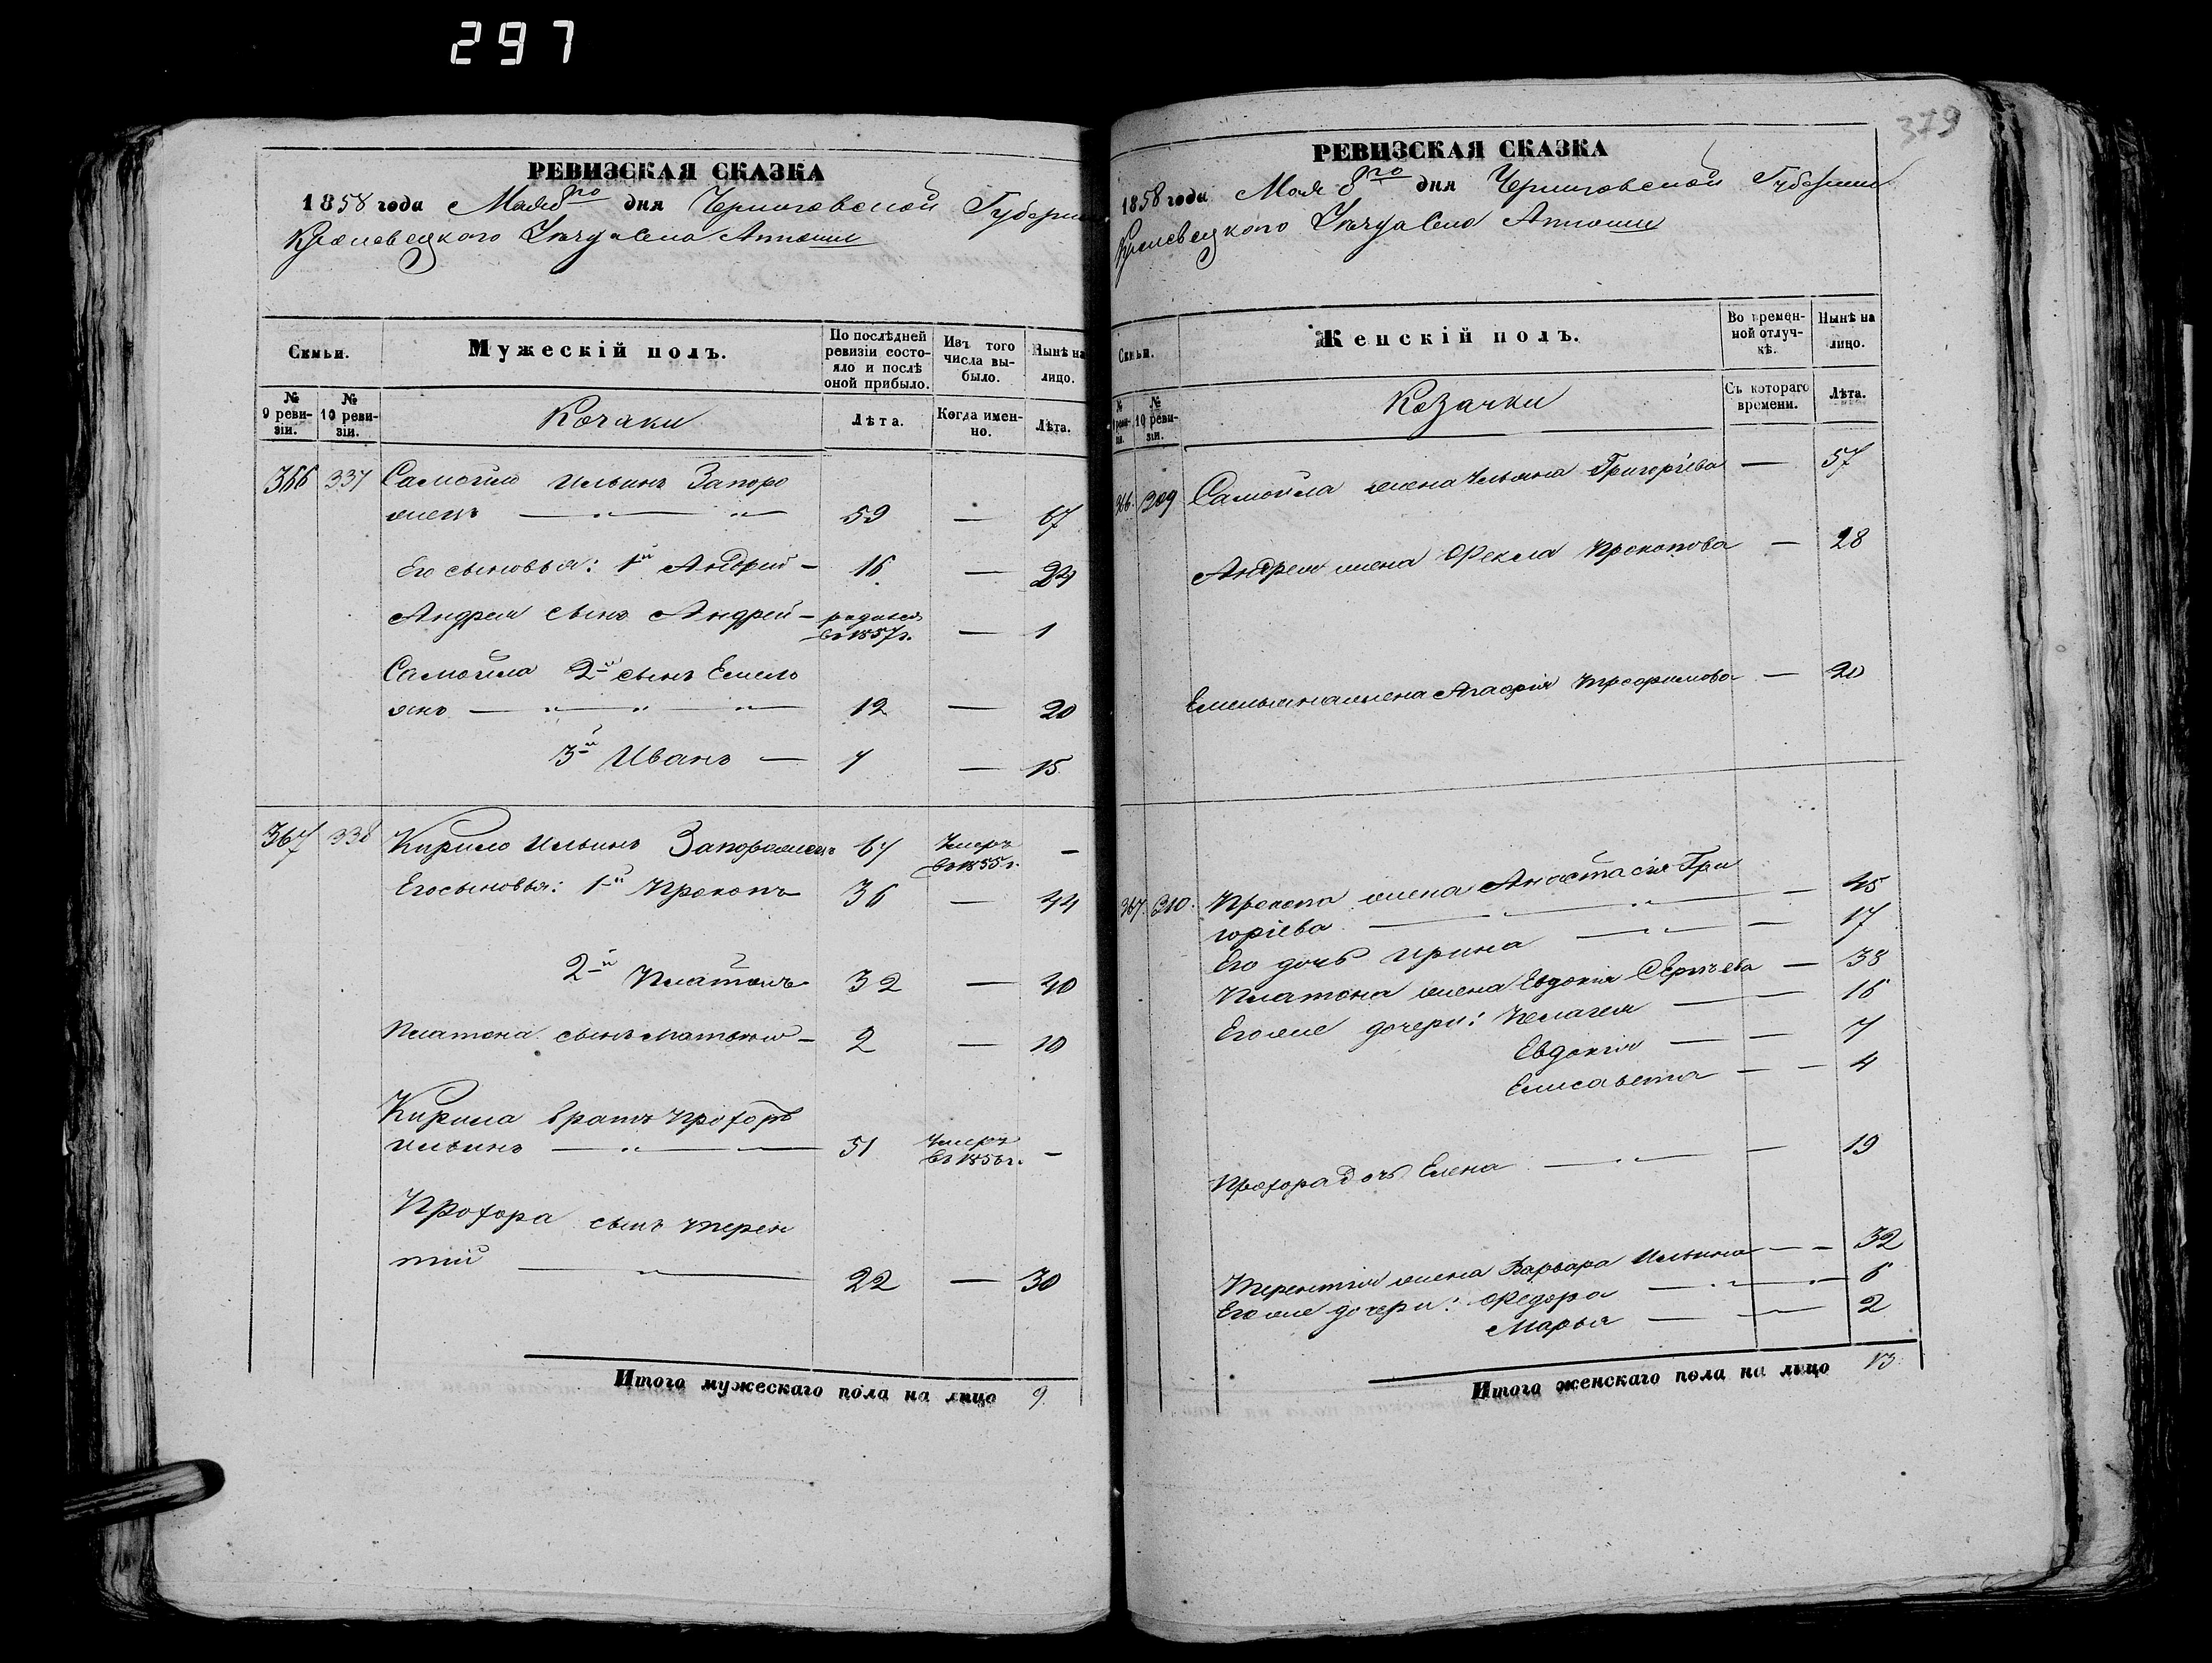 297
РЕВИЗСКАЯ СКАЗКА
1858 года Мая 6го дня Черниговской Губерніи
Кролевецкого Уѣзда Села
Семьи.
Мужескій полъ.
По послѣдней ревизіи состояло и послѣ оной прибыло.
Изъ того числа выбыло.
Нынѣ на лицо.
№ 9 ревизіи.
№ 10 ревизіи.
Козаки
Лѣта.
Когда именно.
Лѣта.
366 337 Самойло Ильинъ Запоро
жецъ — „ — „ — 59 — 67
Его сыновья: 1й Андрей — 16 — 24
Андрея сынъ Андрей — родился въ 1857г. — 1
Самойла 2й сынъ Емель
янъ — „ — „ — „ — 12 — 20
3й Иванъ — 7 — 15
367 338 Кирило Ильинъ Запорожецъ 67 Умеръ въ 1855г. —
Его сыновья: 1й Прокопъ 36 — 44
2й Платонъ 32 — 40
Платона сынъ — 2 — 10
Кирила братъ Прохоръ
Ильинъ — „ — — 51 Умеръ въ 1856г. —
Прохора сынъ Терен
тій — „ — 22 — 30
Итого мужескаго пола на лицо 9
379
РЕВИЗСКАЯ СКАЗКА
1858 года Мая 6го дня Черниговской Губерніи
Кролевецкого Уѣзда Села
Семьи.
Женскій полъ.
Во временной отлучкѣ.
Нынѣ на лицо.
№ 9 ревизіи.
№ 10 ревизіи.
Козачки
Съ котораго времени.
Лѣта.
366 Самойла жена Ульяна Григоріева — 57
Андрея жена Фекла Прокопова — 28
Емельяна жена Агафія Трофимова — 20
367 Прокопа жена Анастасія Гри
горіева — „ — „ — 45
Его дочь Ирина — „ — — 17
Платона жена Евдокія Сергѣева — 38
Его же дочери: Пелагея — — 16
Евдокія — — 7
Елисавета — — 4
Прохора дочь Елена — „ — — 19
Терентія жена Варвара Ильина — — 32
Его же дочери: Федора — „ — 6
Марья — — 2
Итого женскаго пола на лицо 13